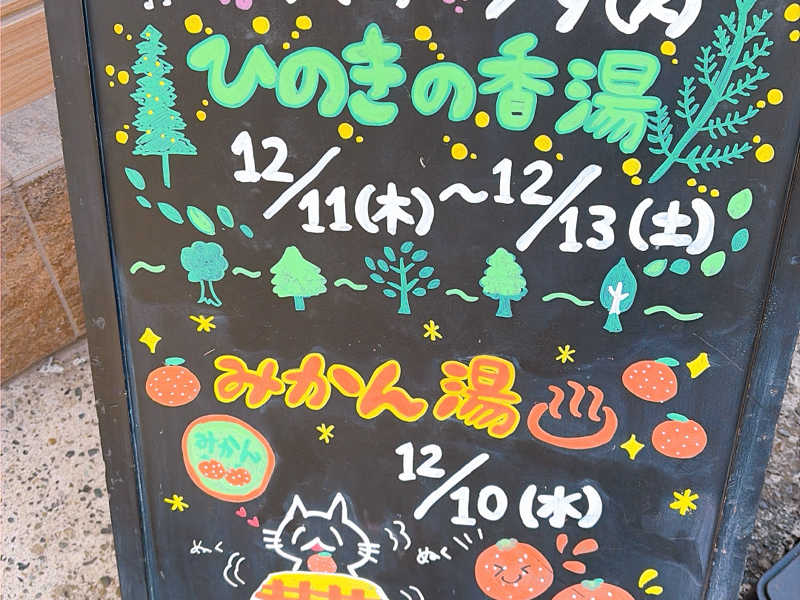 ひのきの香湯
12/11(木)~12/13(土)
みかん湯
みかん
12/10(水)
ぬくぬく